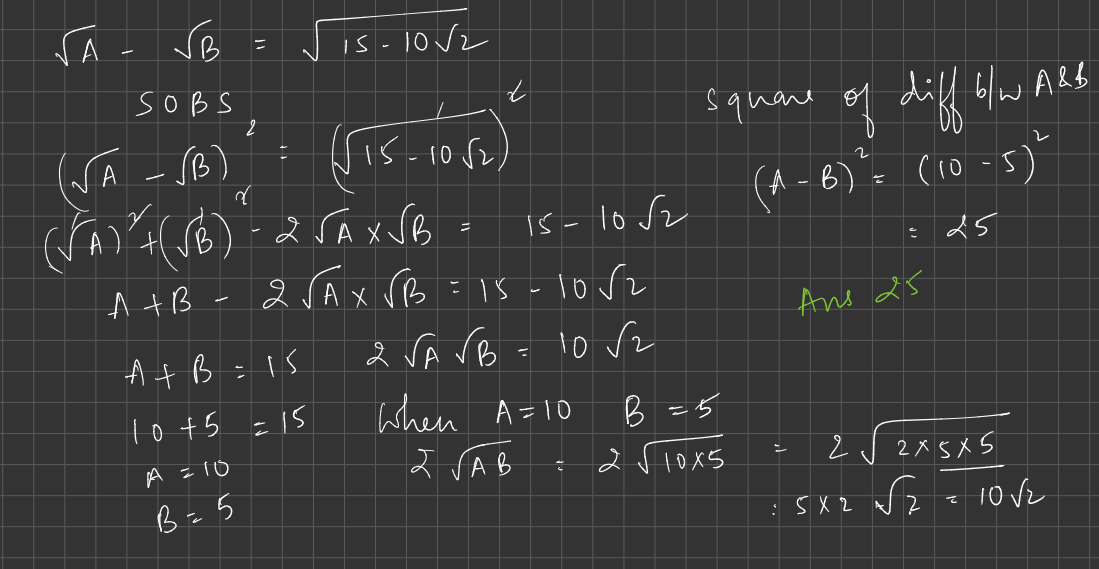 √A - √B = √(15 - 10√2)
SOBS
(√A - √B)² = (√(15 - 10√2))²
(√A)² + (√B)² - 2√A × √B = 15 - 10√2
A + B - 2√A × √B = 15 - 10√2
A + B = 15
2√A √B = 10√2
10 + 5 = 15
When A = 10 B = 5
A = 10
2√AB = 2√(10×5) = 2√(2×5×5)
B = 5
: 5 × 2 √2 = 10√2
square of diff b/w A & B
(A - B)² = (10 - 5)²
= 25
Ans 25